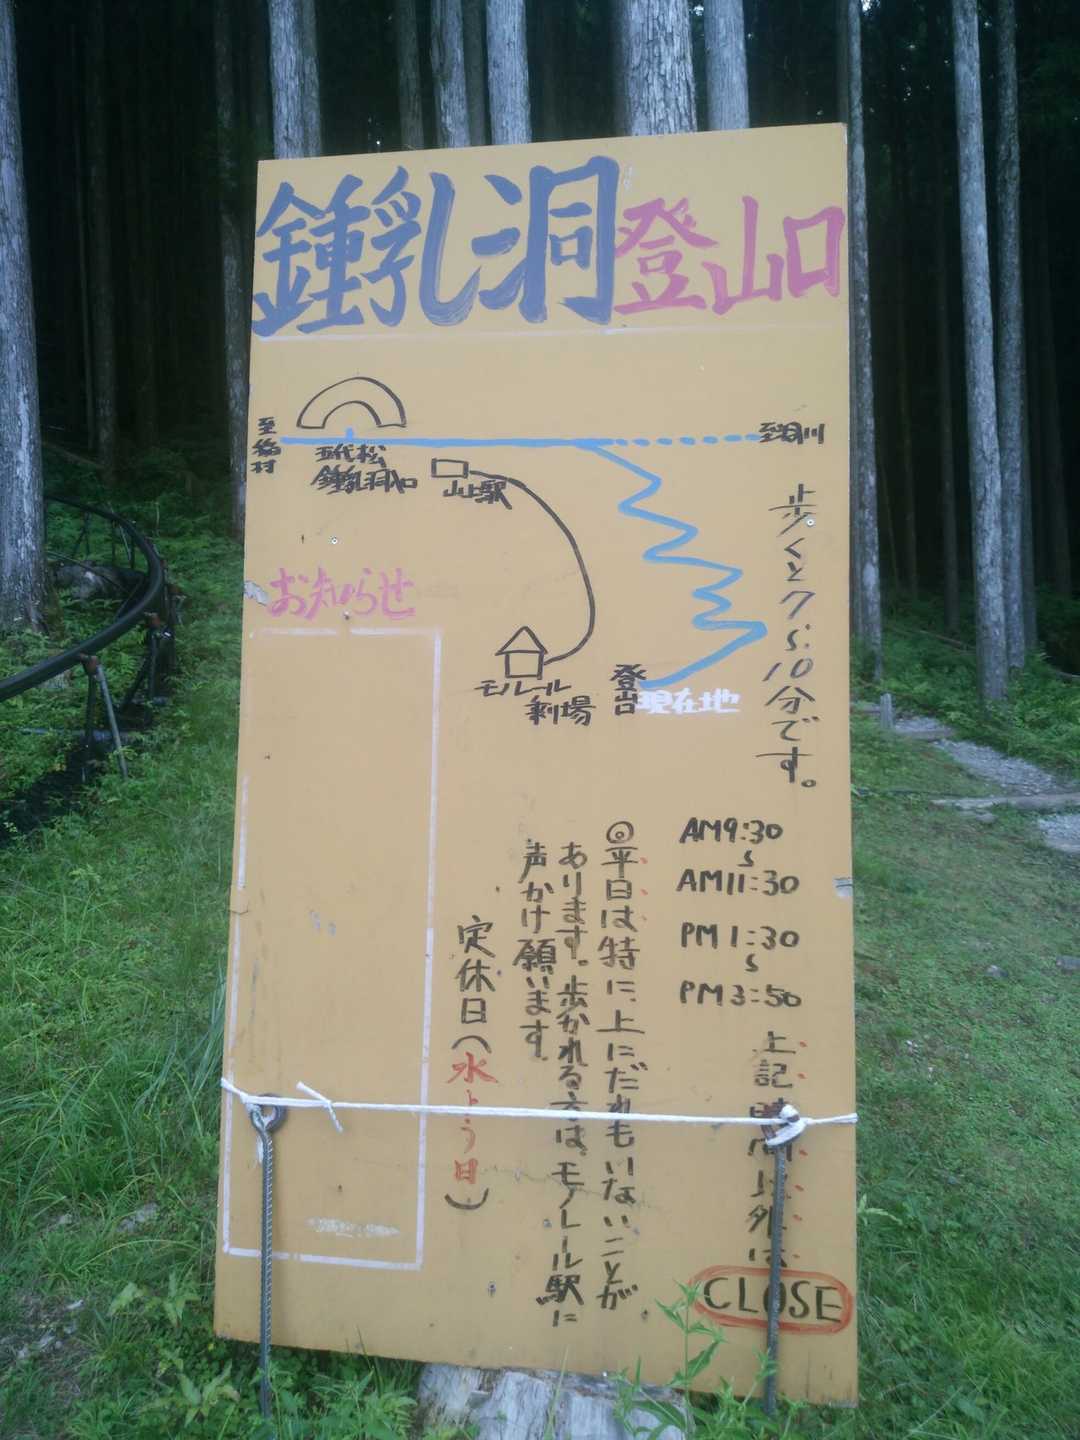 鍾乳洞登山口
至洞川
五代松
鍾乳洞入口
山上駅
モノレール
剰場
登山口
現在地
お知らせ
歩くと7〜10分です。
AM9:30
〜
AM11:30
PM1:30
〜
PM3:50
上記時間以外は
CLOSE
◎平日は特に、上にだれもいないことが
あります。歩かれる方は、モノレール駅に
声かけ願います。
定休日(水よう日)